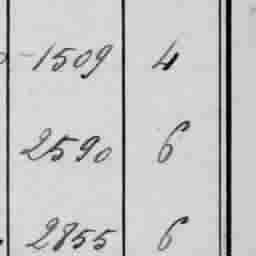 1509 4
2590 6
2855 6